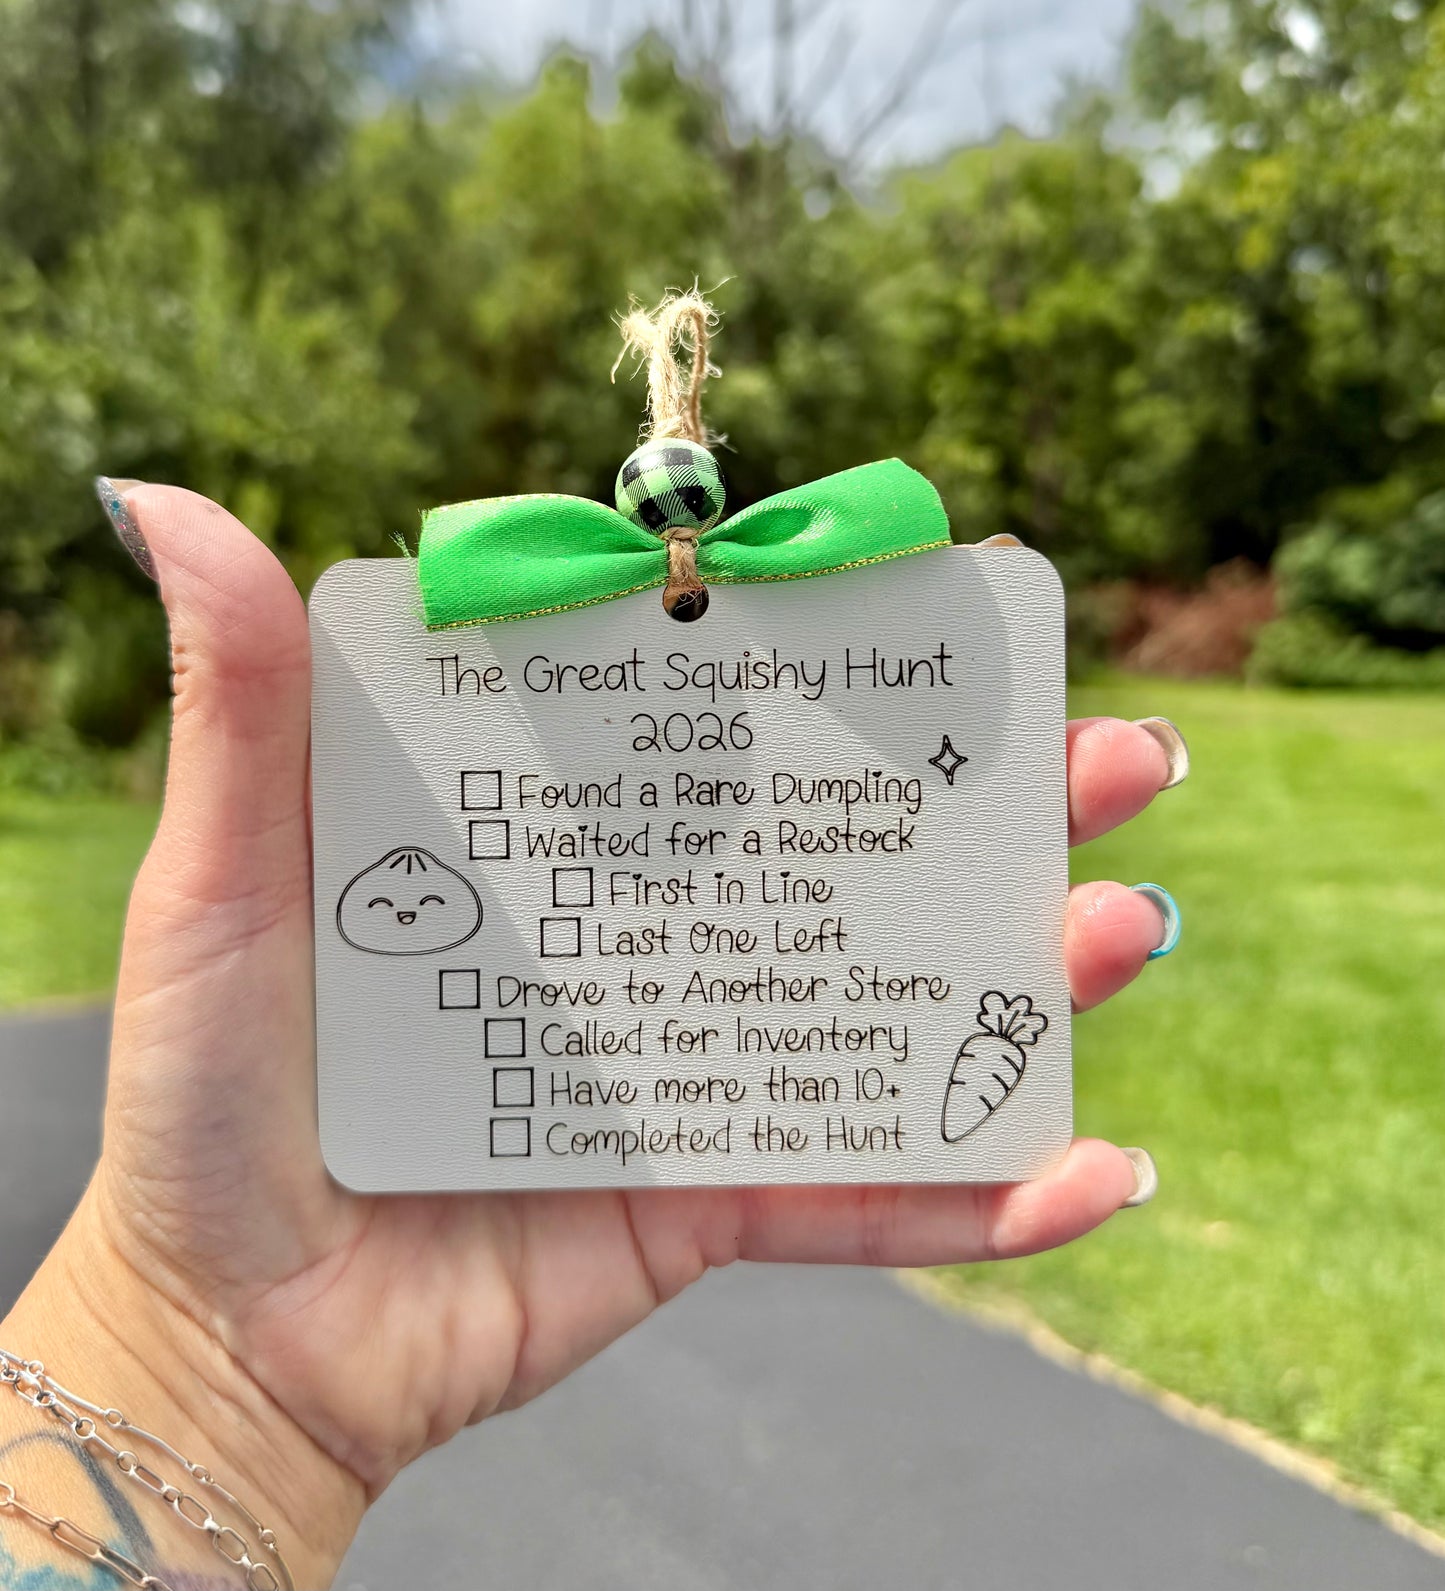 The Great Squishy Hunt
2026
Found a Rare Dumpling
Waited for a Restock
First in Line
Last One Left
Drove to Another Store
Called for Inventory
Have more than 10+
Completed the Hunt